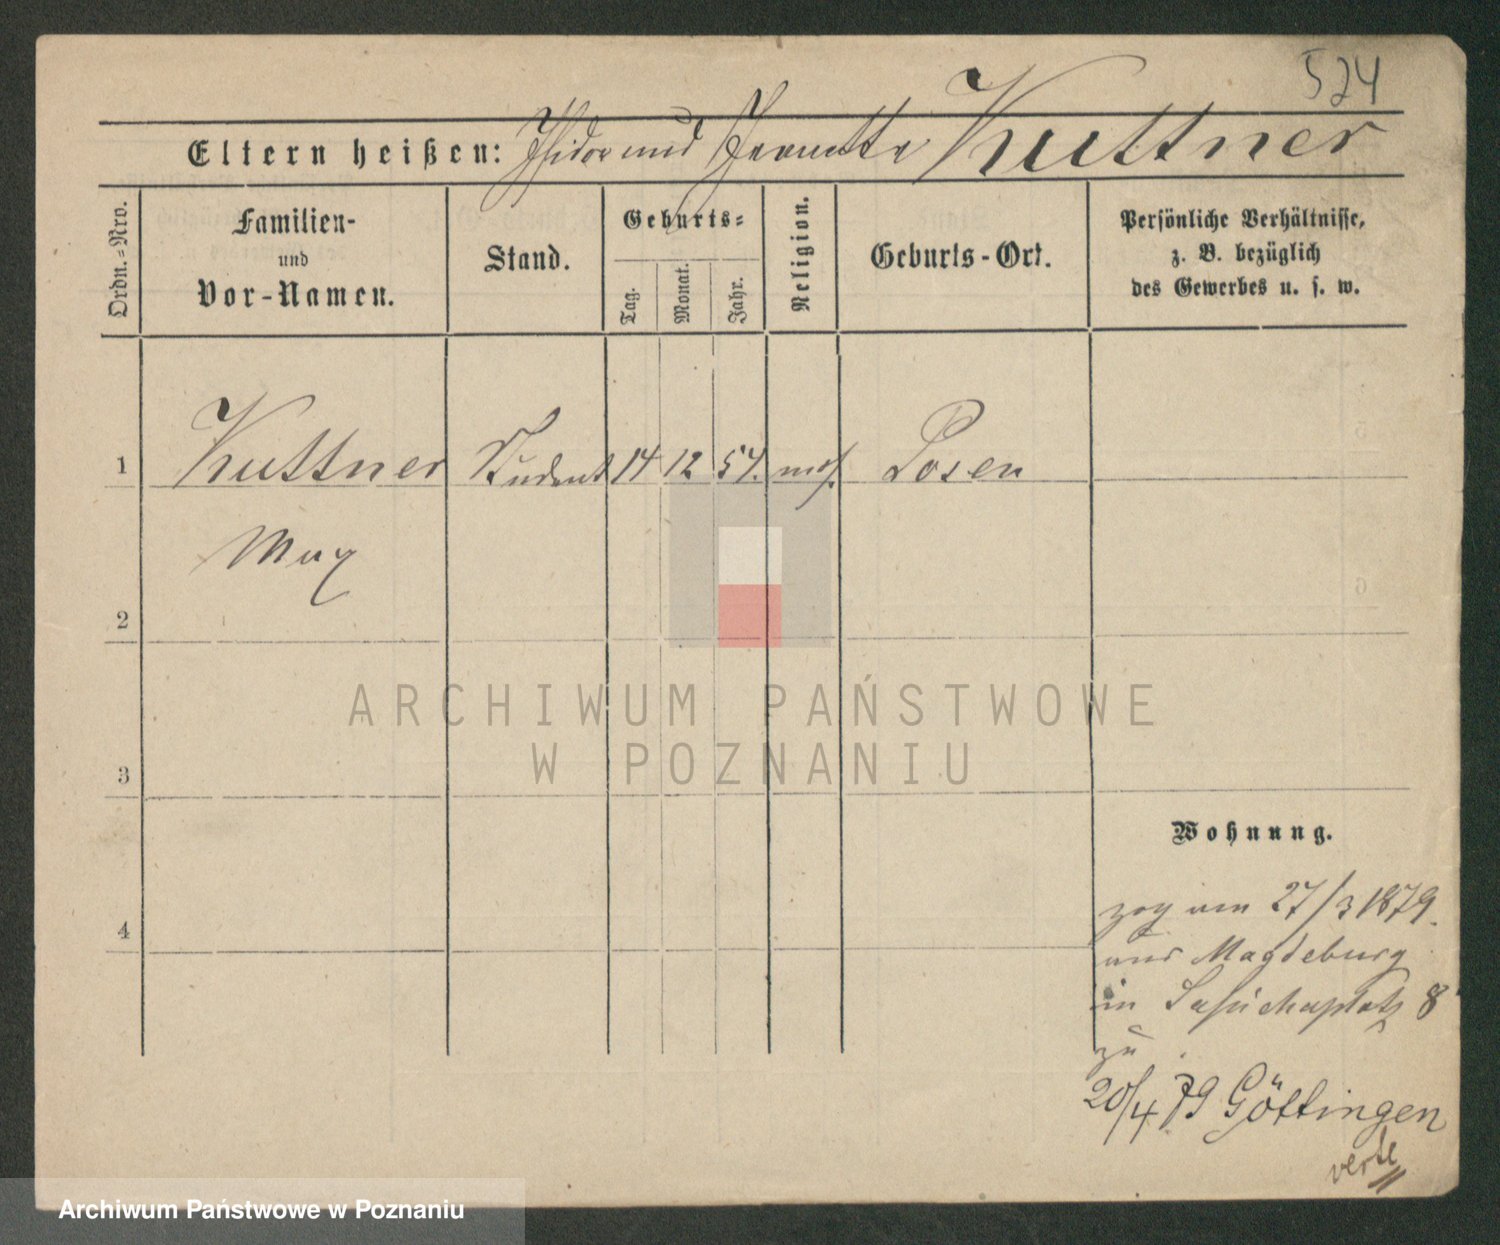 524
Eltern heißen: Isidor und Kuttner
Ordn.-Nro.
Familien-
und
Vor-Namen.
Stand.
Geburts-
Tag.
Monat.
Jahr.
Religion.
Geburts-Ort.
Persönliche Verhältnisse,
z. B. bezüglich
des Gewerbes u. s. w.
1 Kuttner Student 14 12 54. mos. Posen
Max
2
3
4
ARCHIWUM PAŃSTWOWE
W POZNANIU
Wohnung.
zog am 27/3 1879.
aus Magdeburg
in Sapiehaplatz 8
zu
20/4 79 Göttingen
verte
Archiwum Państwowe w Poznaniu